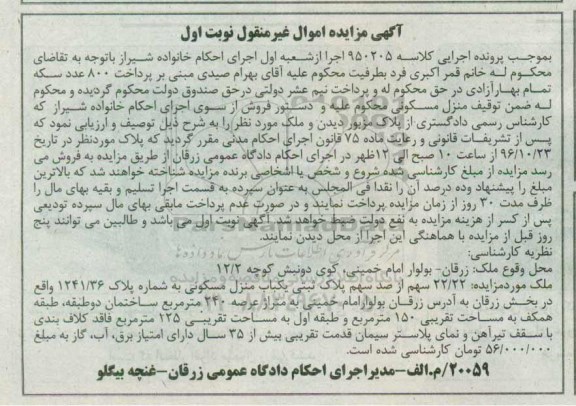 آگهی مزایده اموال غیرمنقول نوبت اول
بموجب پرونده اجرایی کلاسه ۹۵۰۲۰۵ اجرا ازشعبه اول اجرای احکام خانواده شیراز باتوجه به تقاضای
محکوم لـه خانم قمر اکبری فرد بطرفیت محکوم علیه آقای بهرام صیدی مبنی بر پرداخت ۸۰۰ عدد سکه
تمام بهارآزادی در حق محکوم له و پرداخت نیم عشر دولتی درحق صندوق دولت محکوم گردیده و محکوم
له ضمن توقیف منزل مسکونی محکوم علیه و دستور فروش از سوی اجرای احکام خانواده شیراز که
کارشناس رسمی دادگستری از پلاک مزبور دیدن و ملک مورد نظر را به شرح ذیل توصیف و ارزیابی نمود که
پـس از تشریفـات قانونی و رعایت ماده ۷۵ قانون اجرای احکام مدنی مقرر گردید که پلاک موردنظر در تاریخ
۹۶/۱۰/۲۳ از ساعت ۱۰ صبح الی ۱۲ظهر در اجرای احکام دادگاه عمومی زرقان از طریق مزایده به فروش می
رسد مزایده از مبلغ کارشناسی شده شروع و شخص یا اشخاصی برنده مزایده شناخته خواهند شد که بالاترین
مبلغ را پیشنهاد وده درصد آن را نقدا فی المجلس به عنوان سپرده به قسمت اجرا تسلیم و بقیه بهای مال را
ظرف مدت ۳۰ روز از زمان مزایده پرداخت نمایند و در صورت عدم پرداخت مابقی بهای مال سپرده تودیعی
پس از کسر از هزینه مزایده به نفع دولت ضبط خواهد شد. آگهی نوبت اول می باشد و طالبین می توانند پنج
روز قبل از مزایده با هماهنگی این اجرا از محل دیدن نمایند.
نظریه کارشناسی:
محل وقوع ملک: زرقان- بولوار امام خمینی، کوی دونبش کوچه ۱۲/۲
ملک موردمزایده: ۲۲/۲۲ سهم از صد سهم پلاک ثبتی یکباب منزل مسکونی به شماره پلاک ۱۲۴۱/۳۶ واقع
در بخش زرقان به آدرس زرقـان بولوارامام خمینی به متراژعرصه ۲۴۰ مترمربع ساختمان دوطبقه، طبقه
همکف به مساحت تقریبی ۱۵۰ مترمربع و طبقه اول به مساحت تقریبـی ۱۲۵ مترمربع فاقد کلاف بندی
بـا سـقف تیرآهن و نمای پلاستر سیمان قدمت تقریبی بیش از ۳۵ سـال دارای امتیاز برق، آب، گاز به مبلغ
۵۶/۰۰۰/۰۰۰ تومان کارشناسی شده است.
۲۰۰۵۹/م.الف-مدیراجرای احکام دادگاه عمومی زرقان-غنچه بیگلو